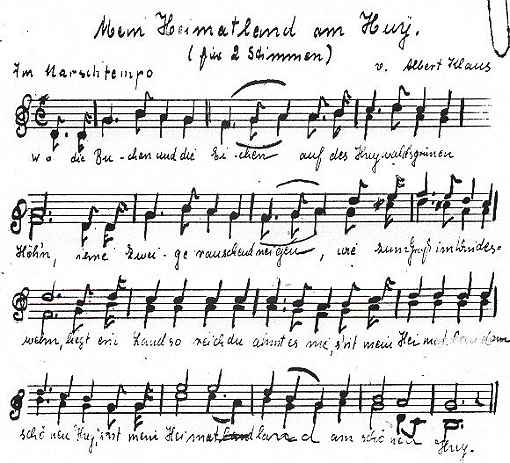 Mein Heimatland am Huy.
(für 2 Stimmen)
Im Marschtempo v. Albert Klaus
wo die Bu-chen und die Ei-chen auf des Huywalds grünen
Höh'n, ihre Zwei-ge rauschend neigen, wie zum Gruß im Windes-
wehn, liegt ein Land so reich du ahnst es nie, s'ist mein Heimatland am
schönen Huy, s'ist mein Heimatland am schönen Huy.